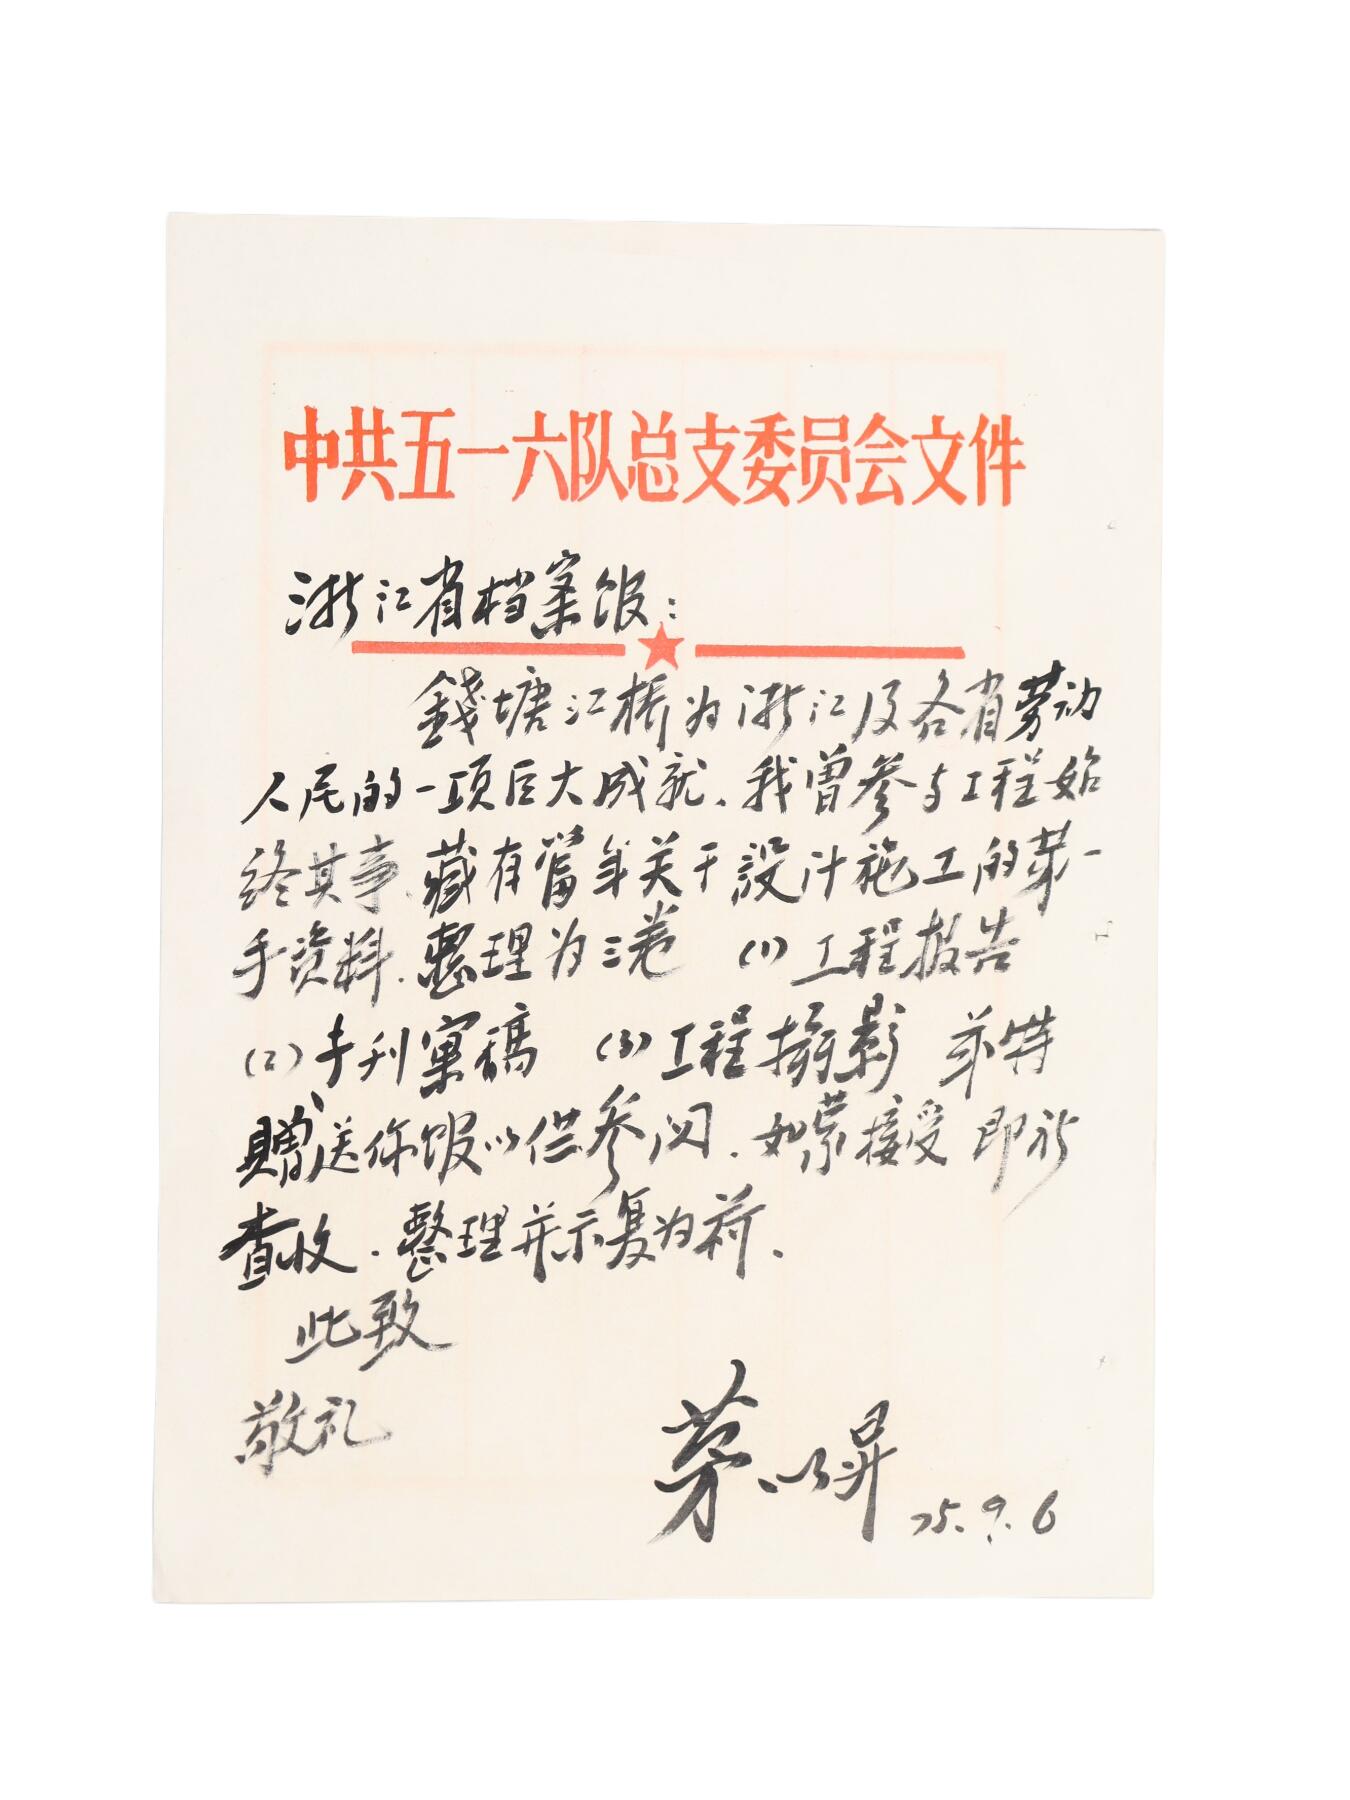 中共五一六队总支委员会文件
浙江省档案馆：
錢塘江桥为浙江及各省劳动
人民的一项巨大成就、我曾參与工程始
终其事、藏有當年关于設计施工的第一
手资料、整理为三卷 (1)工程报告
(2)书刊寓稿 (3)工程攝影 兹特
赠送你馆以供参阅. 如蒙接受 即祈
查收. 整理并示复为荷.
此致
敬礼
茅以昇 75.9.6